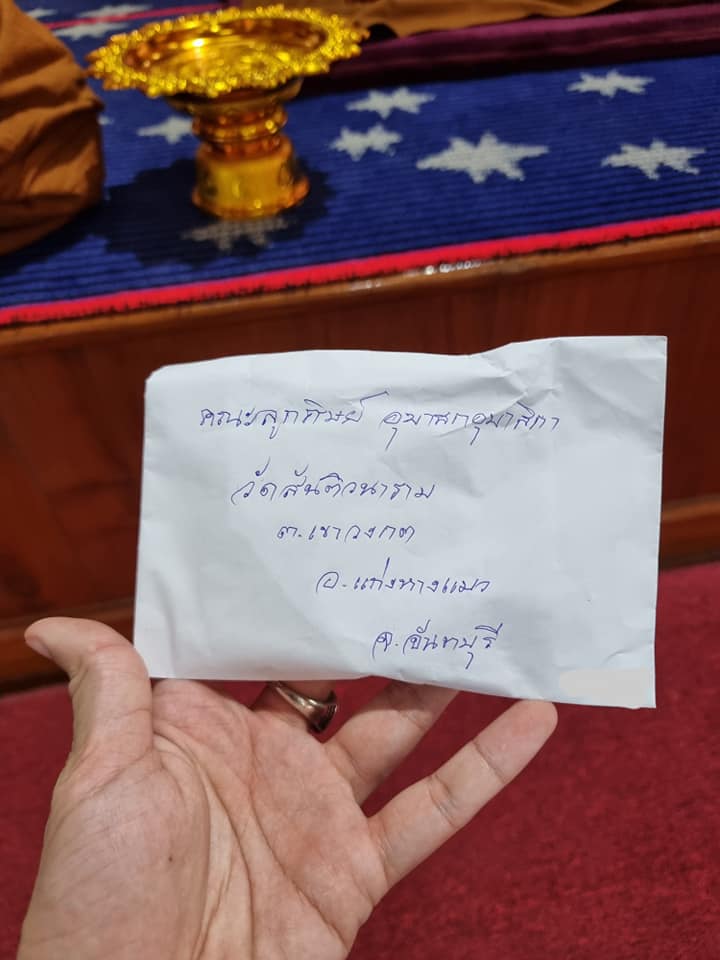 คณะลูกศิษย์ อุบาสกอุบาสิกา
วัดสันติวนาราม
ต.เขาวงกต
อ.แก่งหางแมว
จ.จันทบุรี